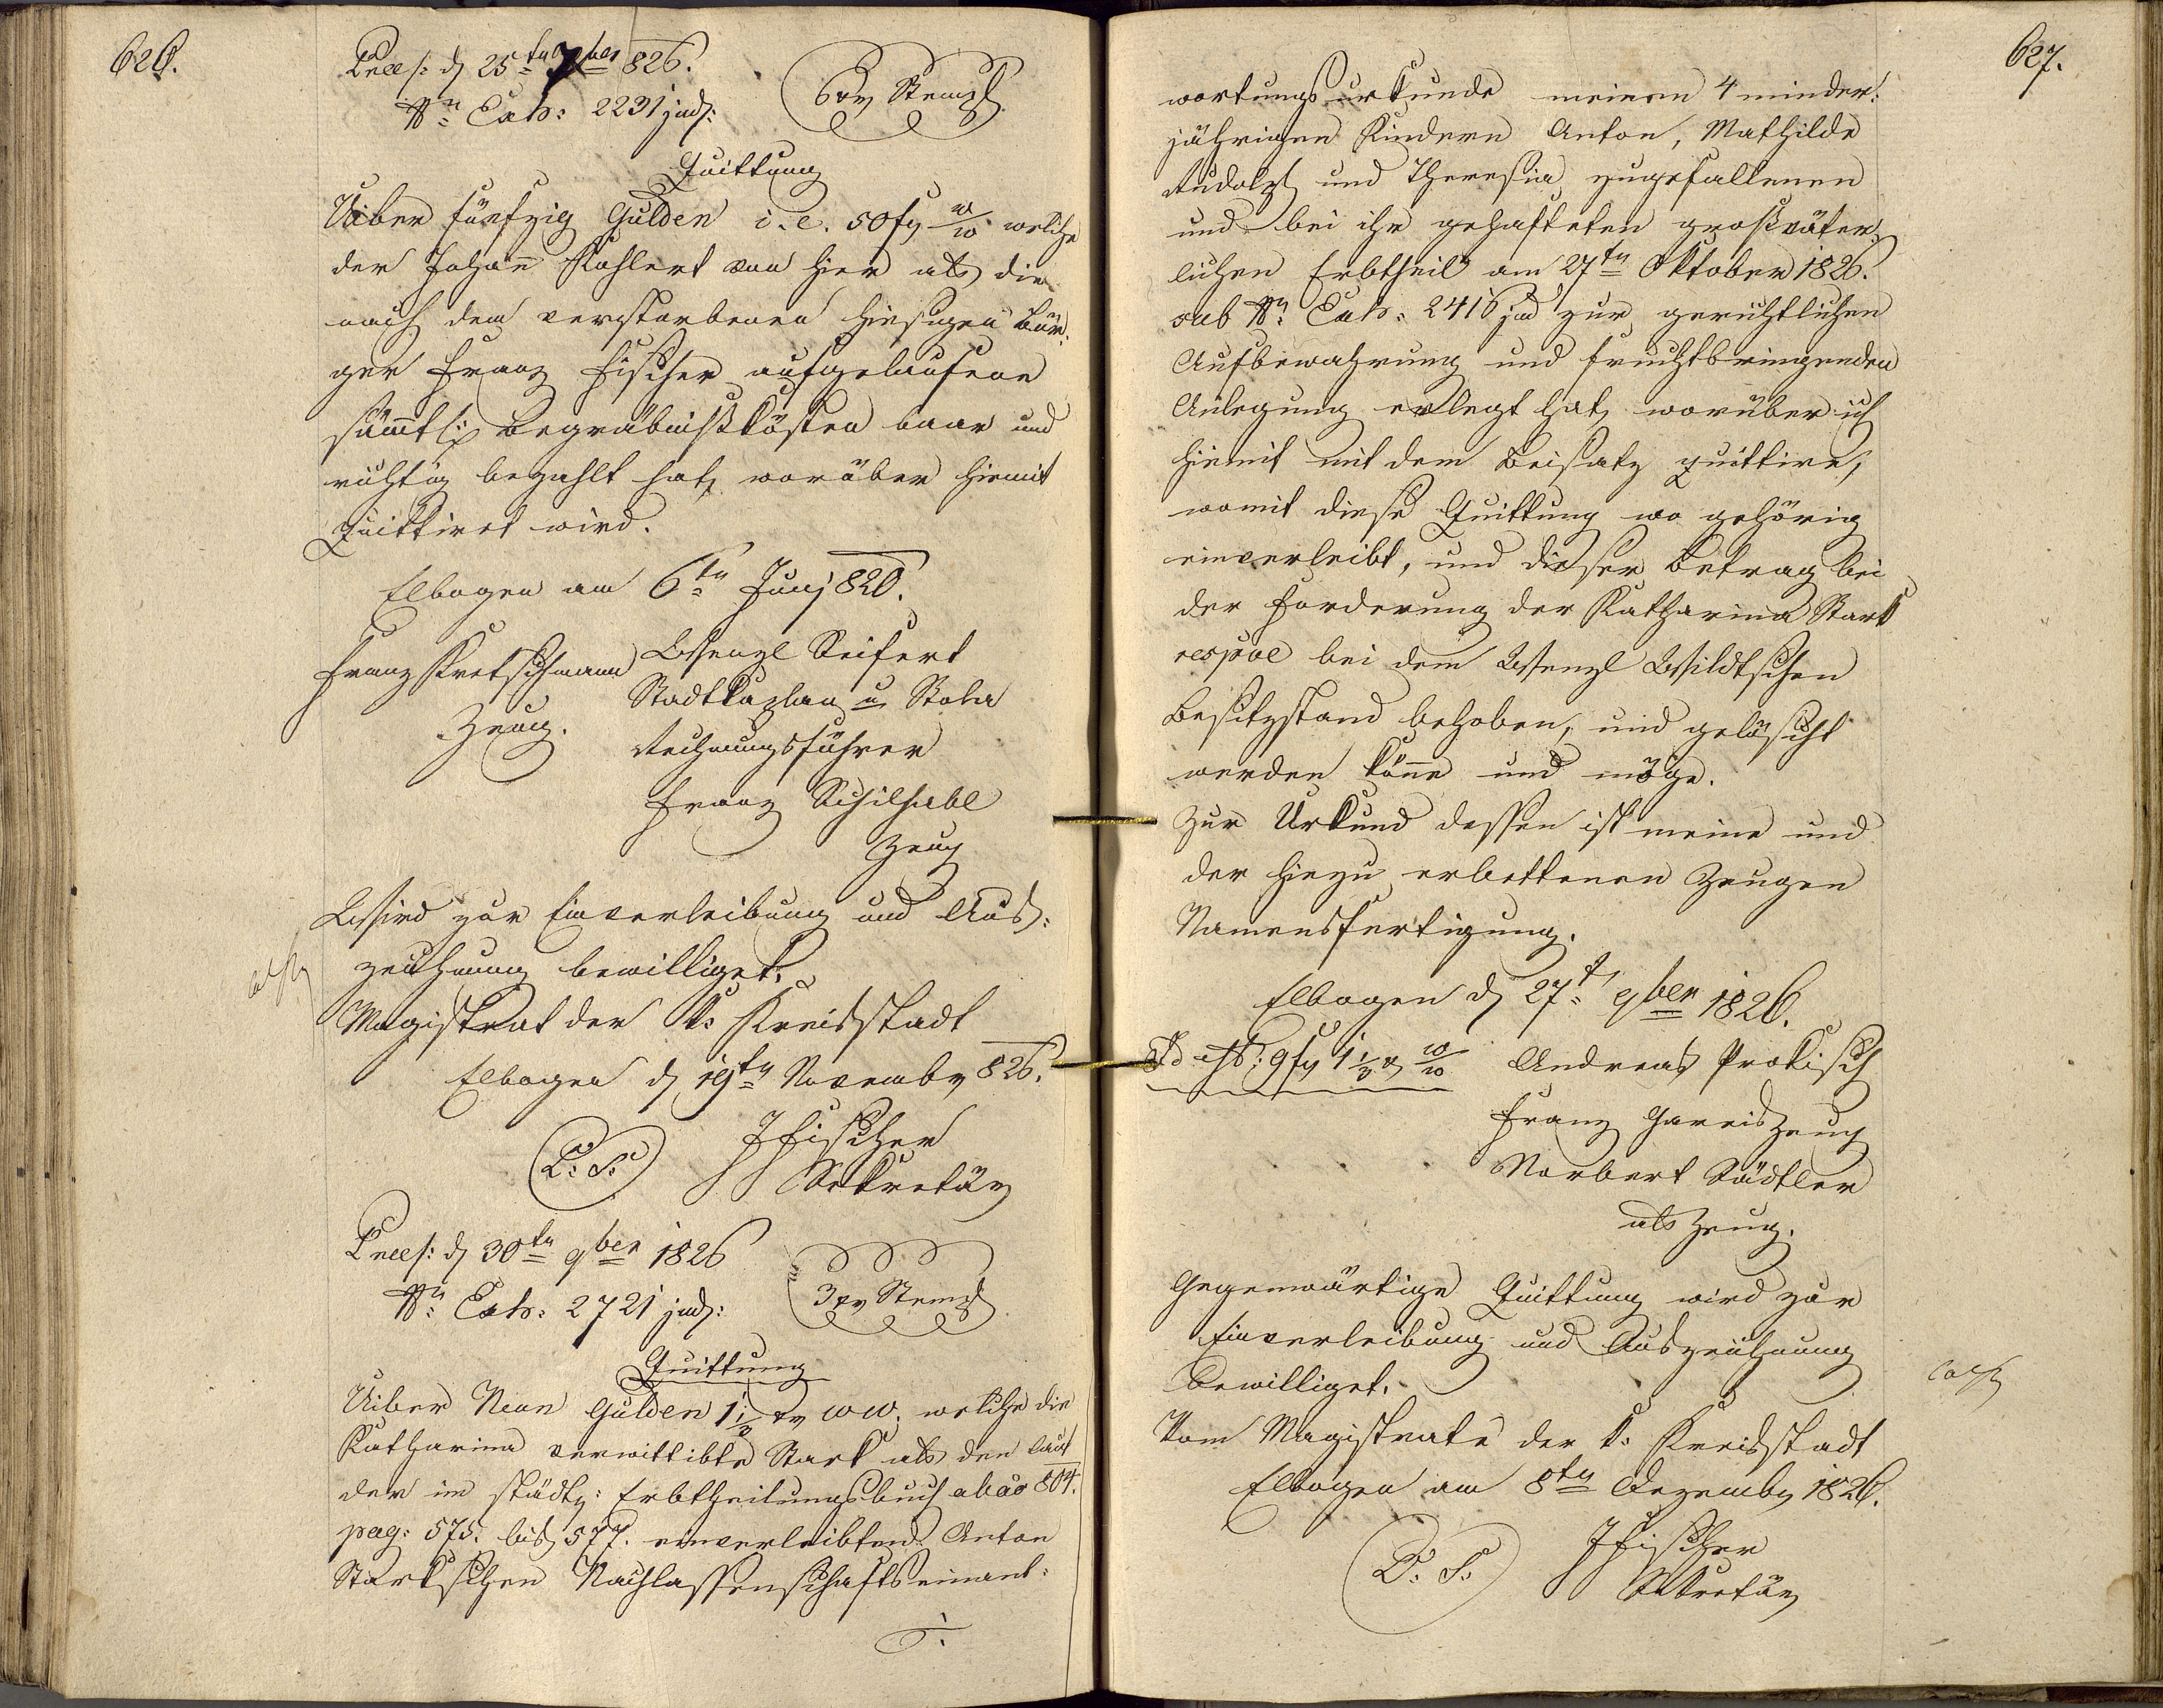 626.
Praes: d 25ten 7ber 826.
Nr Exh: 2231 jud:
6 xr Stempl
Quittung
Uiber fünfzig Gulden i.e. 50 fr W/W welche
der Johann Kohlert von hier als die
nach dem verstorbenen hiesigen Bür:
ger Franz Fischer aufgelaufene
sämtl: Begräbnißkösten baar und
richtig bezahlt hat, worüber hiemit
Quittiret wird.
Elbogen am 6ten Junj 820.
Franz Kretschmann
Zeug.
Wenzl Seifert
Stadtkaplan u Stola
Rechnungsführer
Franz Schilhabl
Zeug
Wird zur Einverleibung und Aus:
zeichnung bewilliget.
Magistrat der k: Kreisstadt
Elbogen d 19ten Novembr 826.
L: S:
JFischer
Sekretär
Praes: d 30ten 9ber 1826
Nr Exh: 2721 jud:
3 xr Stempl
Quittung
Uiber Neun Gulden 1 1/2 xr WW. welche die
Katharina verwittibte Stark als den laut
der im städt: Erbtheilungsbuch ab ao 804.
pag: 575. bis 577. einverleibten Anton
Starkschen Nachlassenschaftseinant:
627.
wortungsurkunde meinen 4 minder:
jährigen Kindern Anton, Mathilde
Rudolph und Theresia zugefallenen
und bei ihr gehafteten großväter:
lichen Erbtheil am 27ten Oktober 1826.
sub Nr Exh: 2416 jud zur gerichtlichen
Aufbewahrung und fruchtbringenden
Anlegung erlegt hat, worüber ich
hiemit mit dem Beisatz quittire,
womit diese Quittung wo gehörig
einverleibt, und dieser Betrag bei
der Forderung der Katharina Stark
respve bei dem Wenzl Wildtschen
Besitzstand behoben, und gelöscht
werden könne und möge.
Zur Urkund dessen ist meine und
der hiezu erbettenen Zeugen
Namensfertigung.
Elbogen d 27t 9ber 1826.
Id est: 9 fr 1 1/2 x W/W
Andreas Prokisch
Franz Gareis Zeug
Norbert Städtler
als Zeug.
Gegenwärtige Quittung wird zur
Einverleibung und Auszeichnung
bewilliget.
Vom Magistrate der k: Kreisstadt
Elbogen am 8ten Dezembr 1826.
L: S:
JFischer
Sekretär